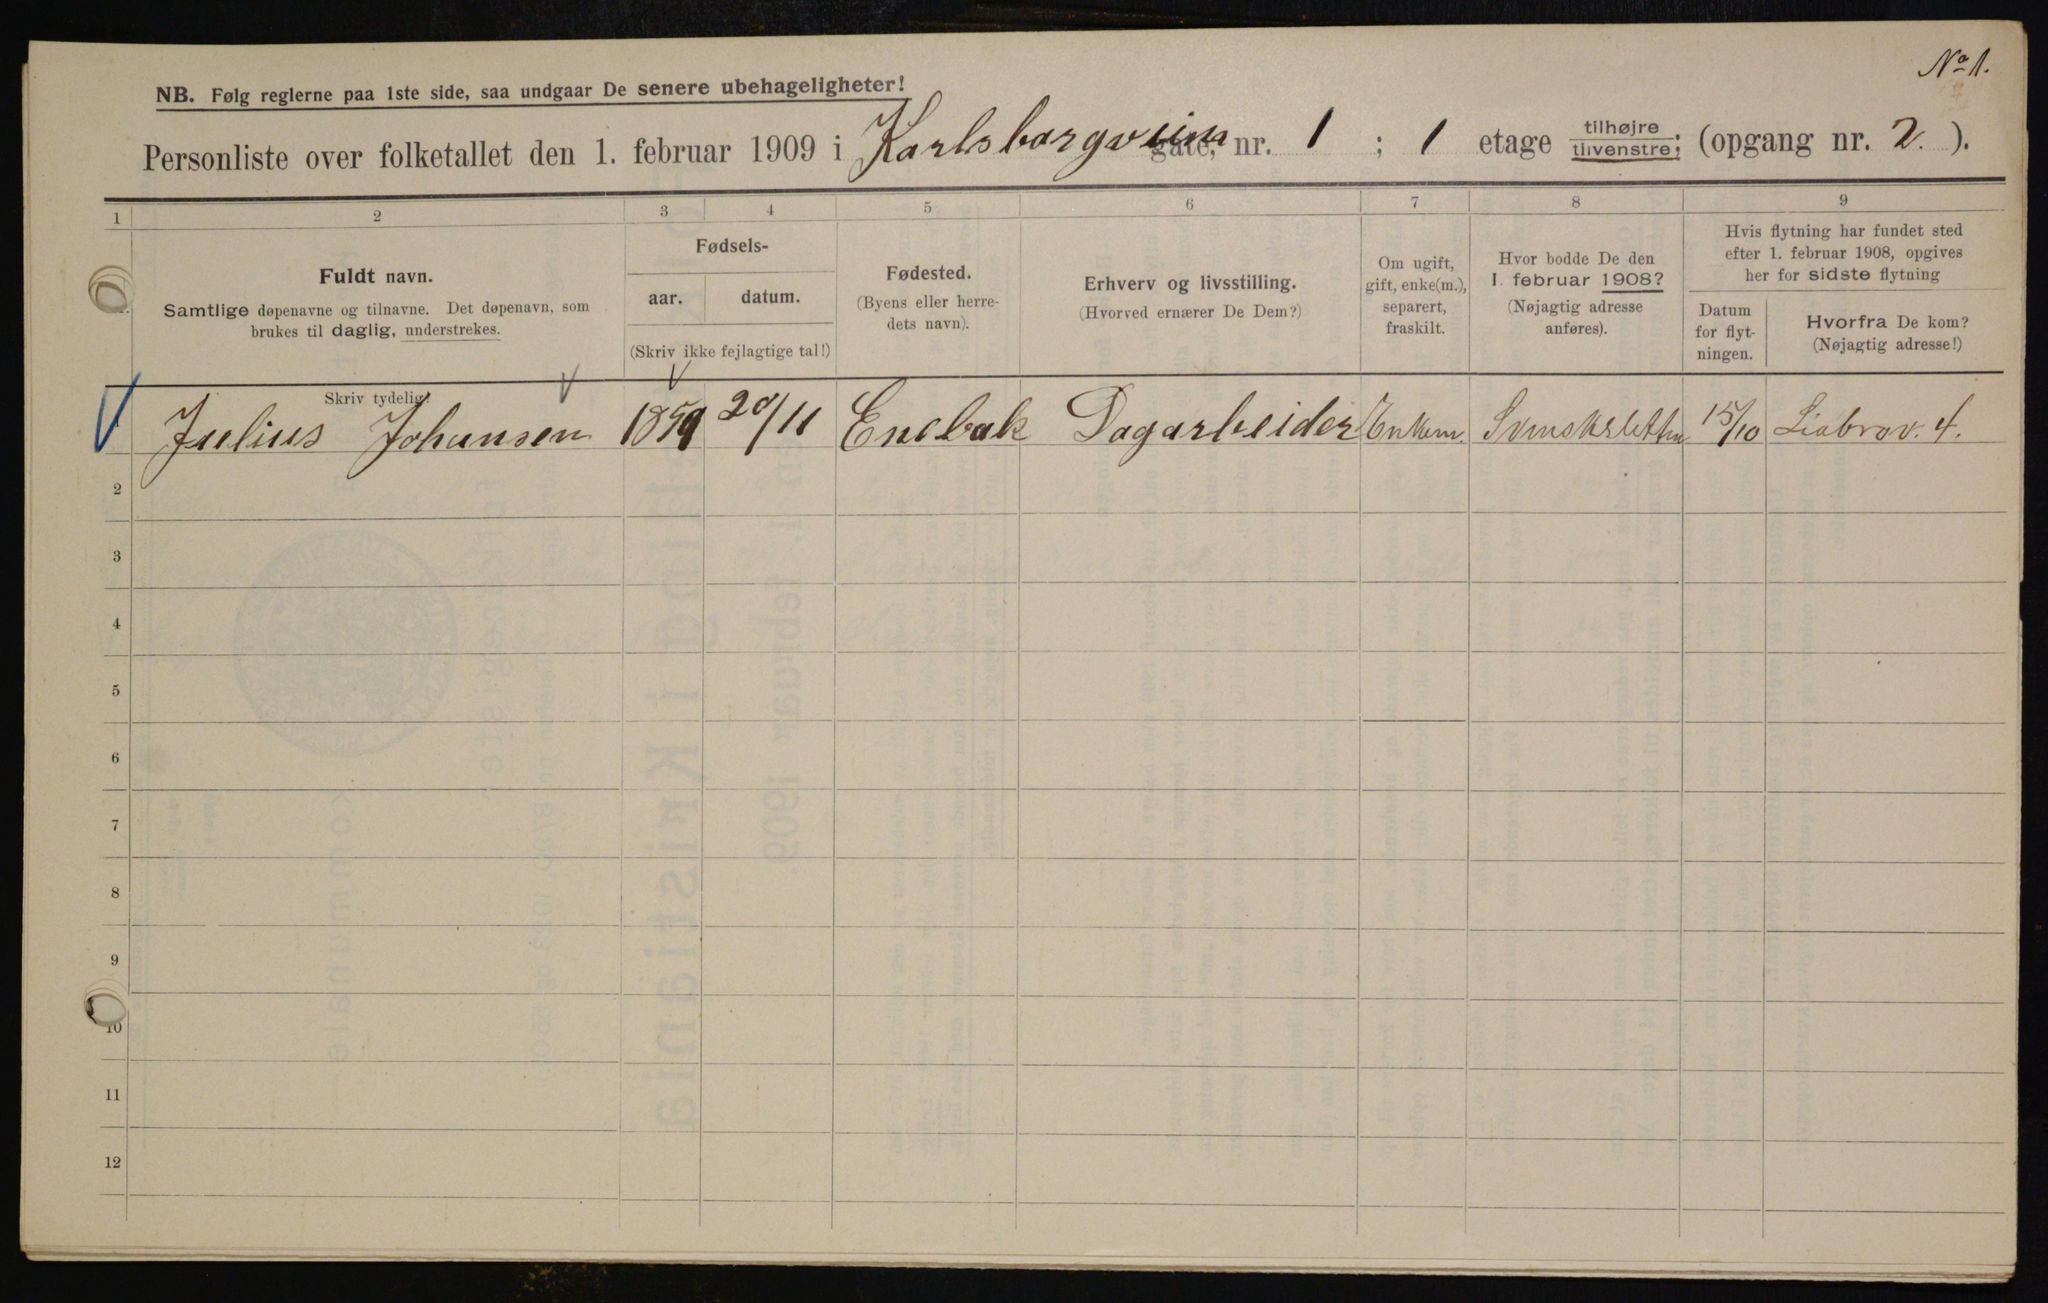 No 1.
NB. Følg reglerne paa 1ste side, saa undgaar De senere ubehageligheter!
Personliste over folketallet den 1. februar 1909 i Karlsborgveien gate, nr. 1 ; 1 etage tilhøjre tilvenstre; (opgang nr. 2. ).
1 2 3 4 5 6 7 8 9
Fuldt navn.
Samtlige døpenavne og tilnavne. Det døpenavn, som
brukes til daglig, understrekes.
Fødsels-
aar. datum.
(Skriv ikke fejlagtige tal!)
Fødested.
(Byens eller herre-
dets navn).
Erhverv og livsstilling.
(Hvorved ernærer De Dem?)
Om ugift,
gift, enke(m.),
separert,
fraskilt.
Hvor bodde De den
1. februar 1908?
(Nøjagtig adresse
anføres).
Hvis flytning har fundet sted
efter 1. februar 1908, opgives
her for sidste flytning
Datum
for flyt-
ningen.
Hvorfra De kom?
(Nøjagtig adresse!)
Skriv tydelig!
Julius Johansen 1859 20/11 Enebak Dagarbeider Enkem. 15/10 Liabrov. 4.
2
3
4
5
6
7
8
9
10
11
12